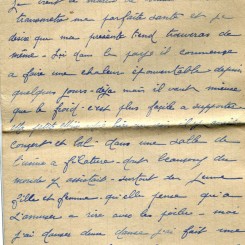 transmettre une parfaite santé et je
désire que ma présente vend trouveras de
même - Ici dans la pays il commense
a faire une chaleur épouventable depuis
quelques jours - déja mais il vaut mieux
que le froid - c'est plus facile a supporter
concert et bal - dans une salle de
l'usine a filature - dont beaucoup du
monde y assistait - surtout des jeune
filles et femme - qu'elle pense qu'a
s'amuser a rire avec les poilus - moi
j'ai danser deux danse j'ai fait une